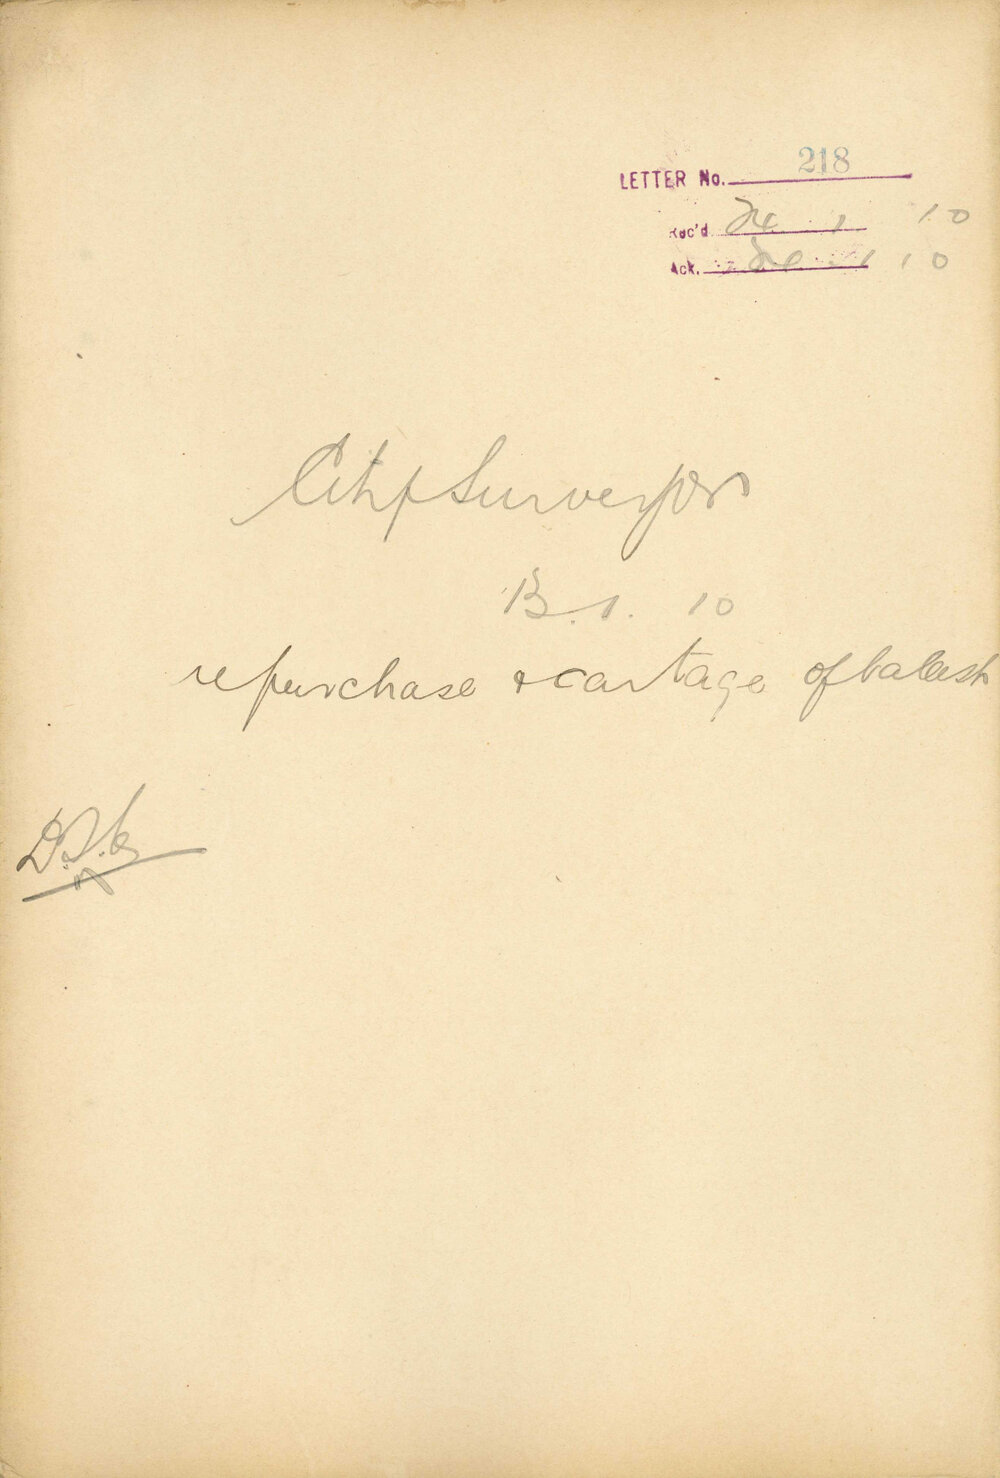 LETTER No. 218
Rec'd 24 1 10
Ack. 24 1 10
City Surveyor
13.1.10
re purchase & cartage of balast